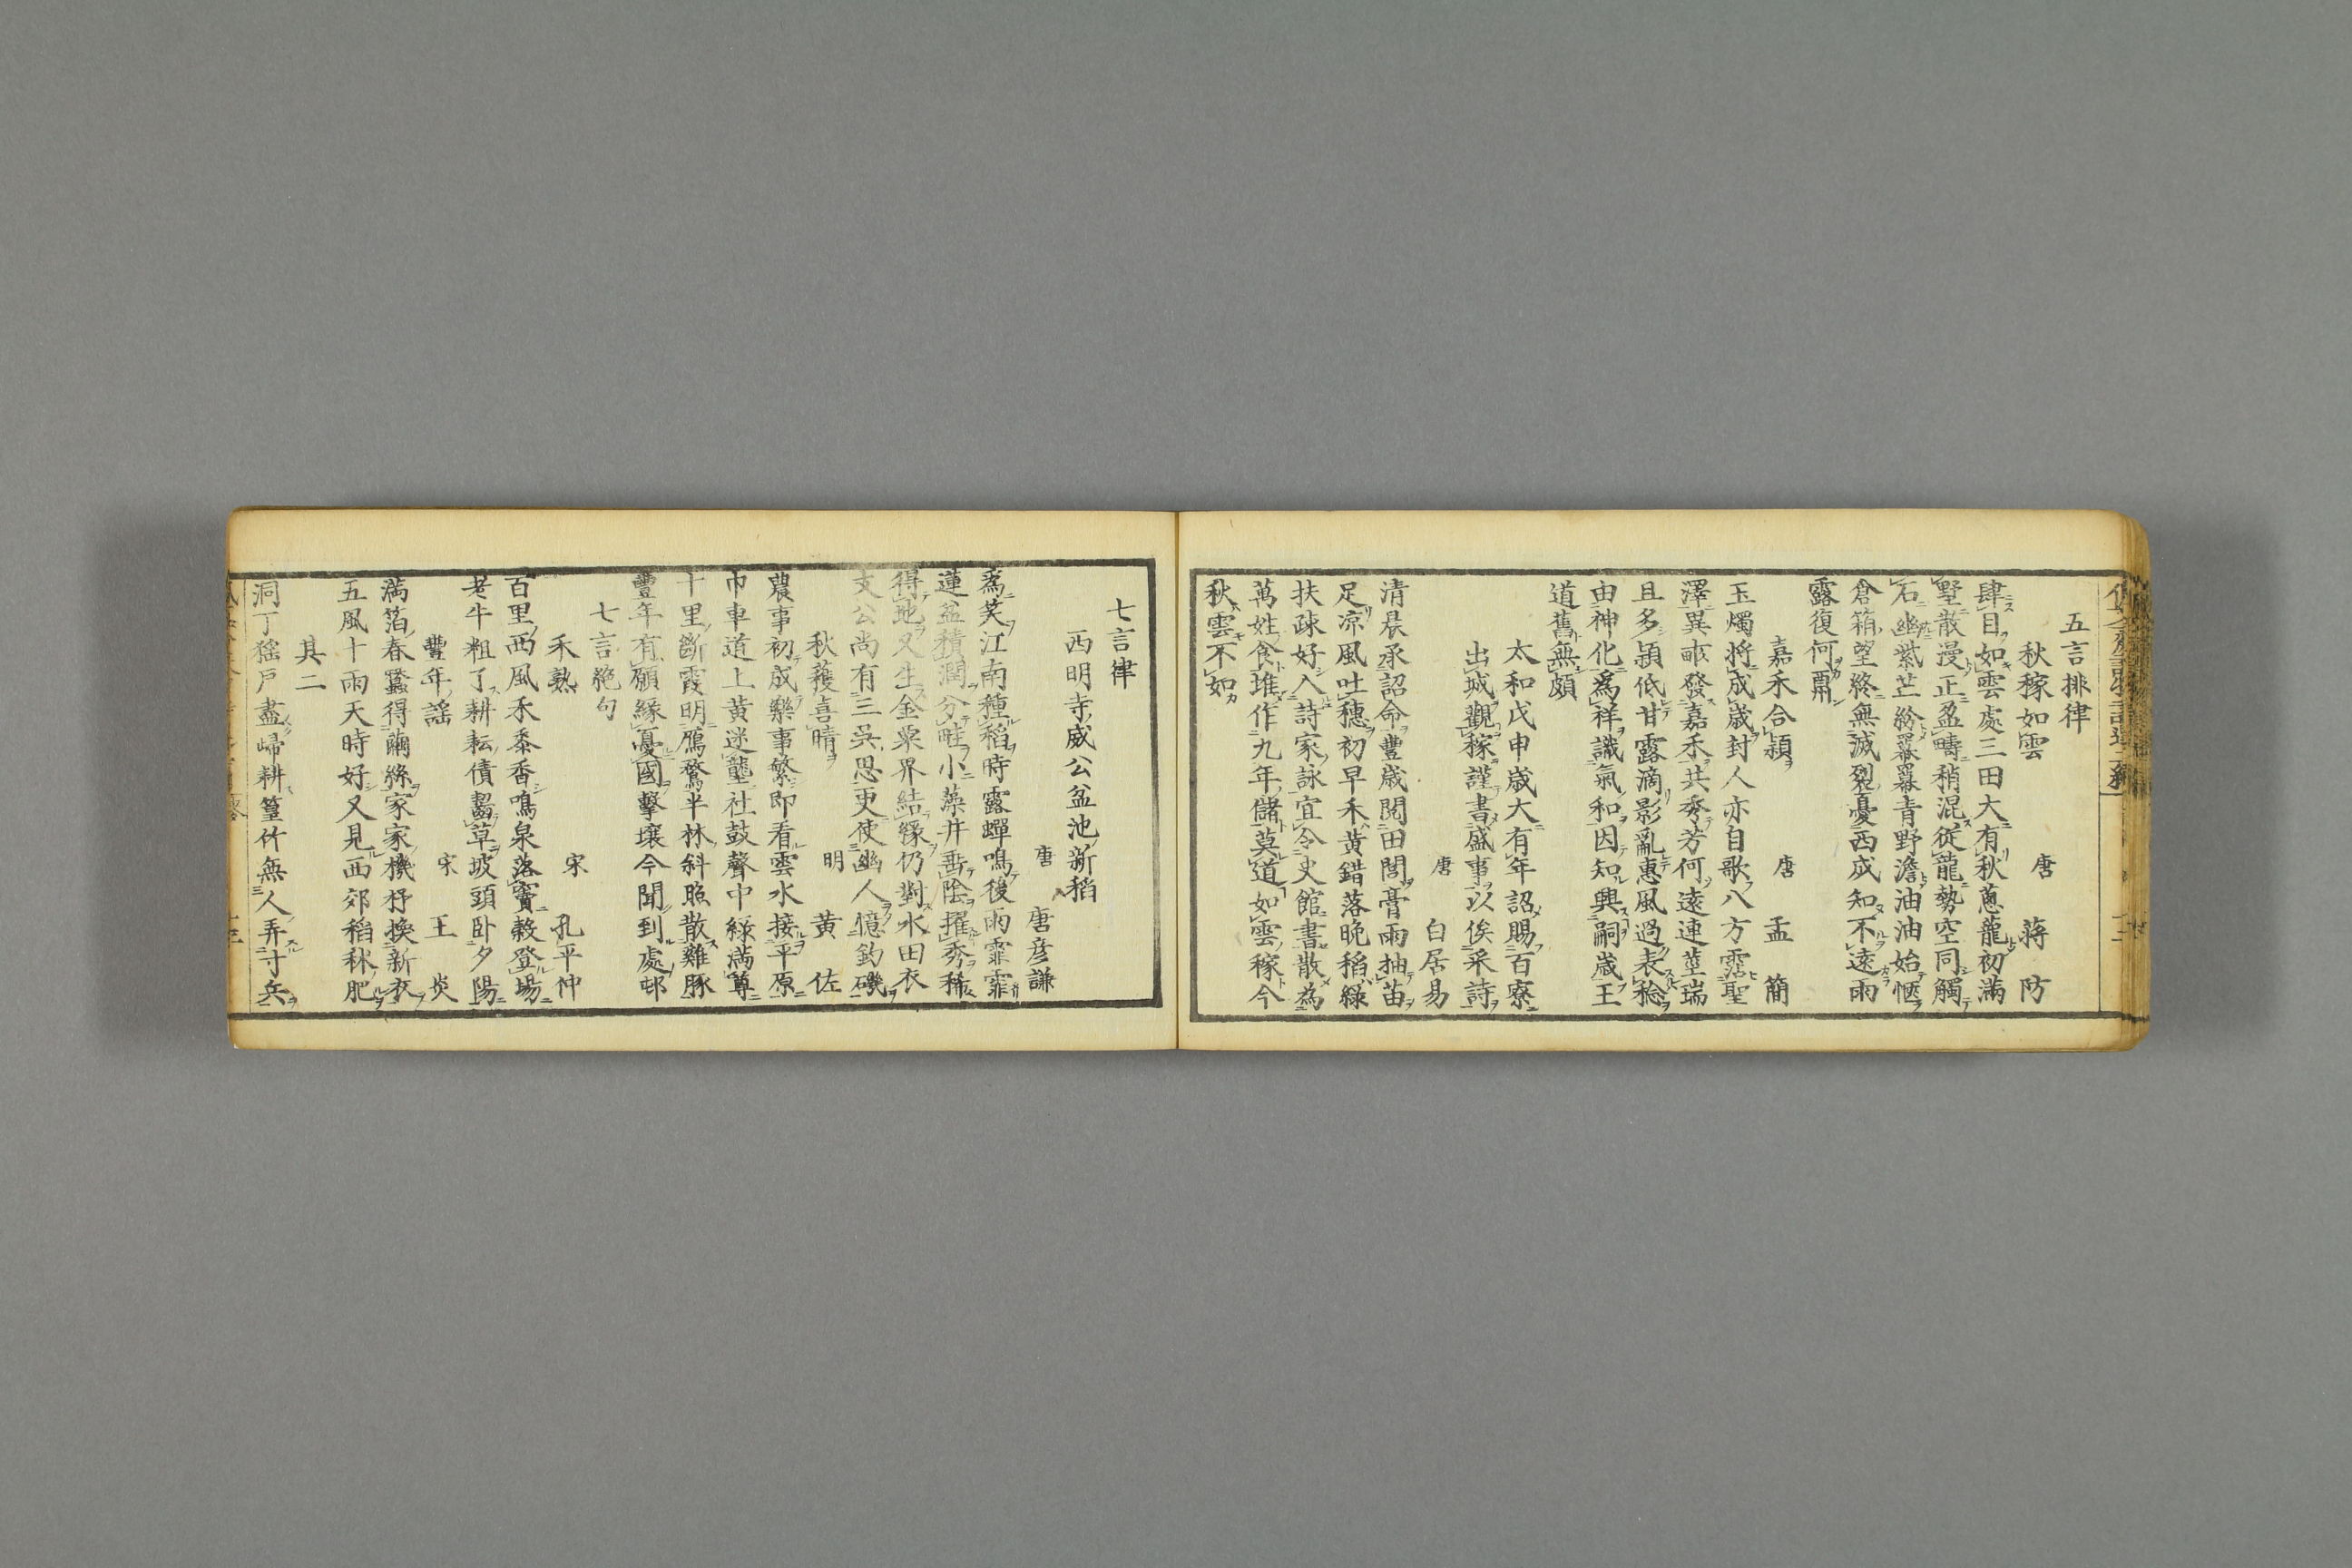 五言排律
秋稼如雲　唐　蔣防
肆目如雲處三田大有秋蔥蘢初滿
墅散漫正盈疇稍混從龍勢空同觸
石幽紫芒紛羃羃青野澹油油始愜
倉箱望終無滅裂憂西成知不遠雨
露復何酬
嘉禾合穎　唐　孟簡
玉燭將成歲封人亦自歌八方霑聖
澤異畝發嘉禾共秀芳何遠連莖瑞
且多穎低甘露滴影亂惠風過表稔
由神化為祥識氣和因知興嗣歲王
道舊無頗
太和戊申歲大有年詔賜百寮
出城觀稼謹書盛事以俟采詩
唐　白居易
清晨承詔命豐歲閱田閭膏雨抽苗
足凉風吐穗初早禾黃錯落晚稻綠
扶疎好入詩家詠宜令史館書散為
萬姓食堆作九年儲莫道如雲稼今
秋雲不如
七言律
西明寺威公盆池新稻
唐　唐彦謙
為笑江南種稻時露蟬鳴後雨霏霏
蓮盆積潤分畦小藻井垂陰擢秀稀
得地又生金粟界結緣仍對水田衣
支公尚有三吳思更使幽人憶釣磯
秋穫喜晴　明　黃佐
農事初成樂事繁即看雲水接平原
巾車道上黃迷壟社鼓聲中綠滿尊
十里斷霞明鴈鶩半林斜照散雞豚
豐年有願緣憂國擊壤今聞到處邨
七言絕句
禾熟　宋　孔平仲
百里西風禾黍香鳴泉落竇穀登場
老牛粗了耕耘債齧草坡頭卧夕陽
豐年謠　宋　王炎
滿箔春蠶得繭絲家家機杼換新衣
五風十雨天時好又見西郊稻秫肥
其二
洞丁猺戶盡歸耕篁竹無人弄寸兵